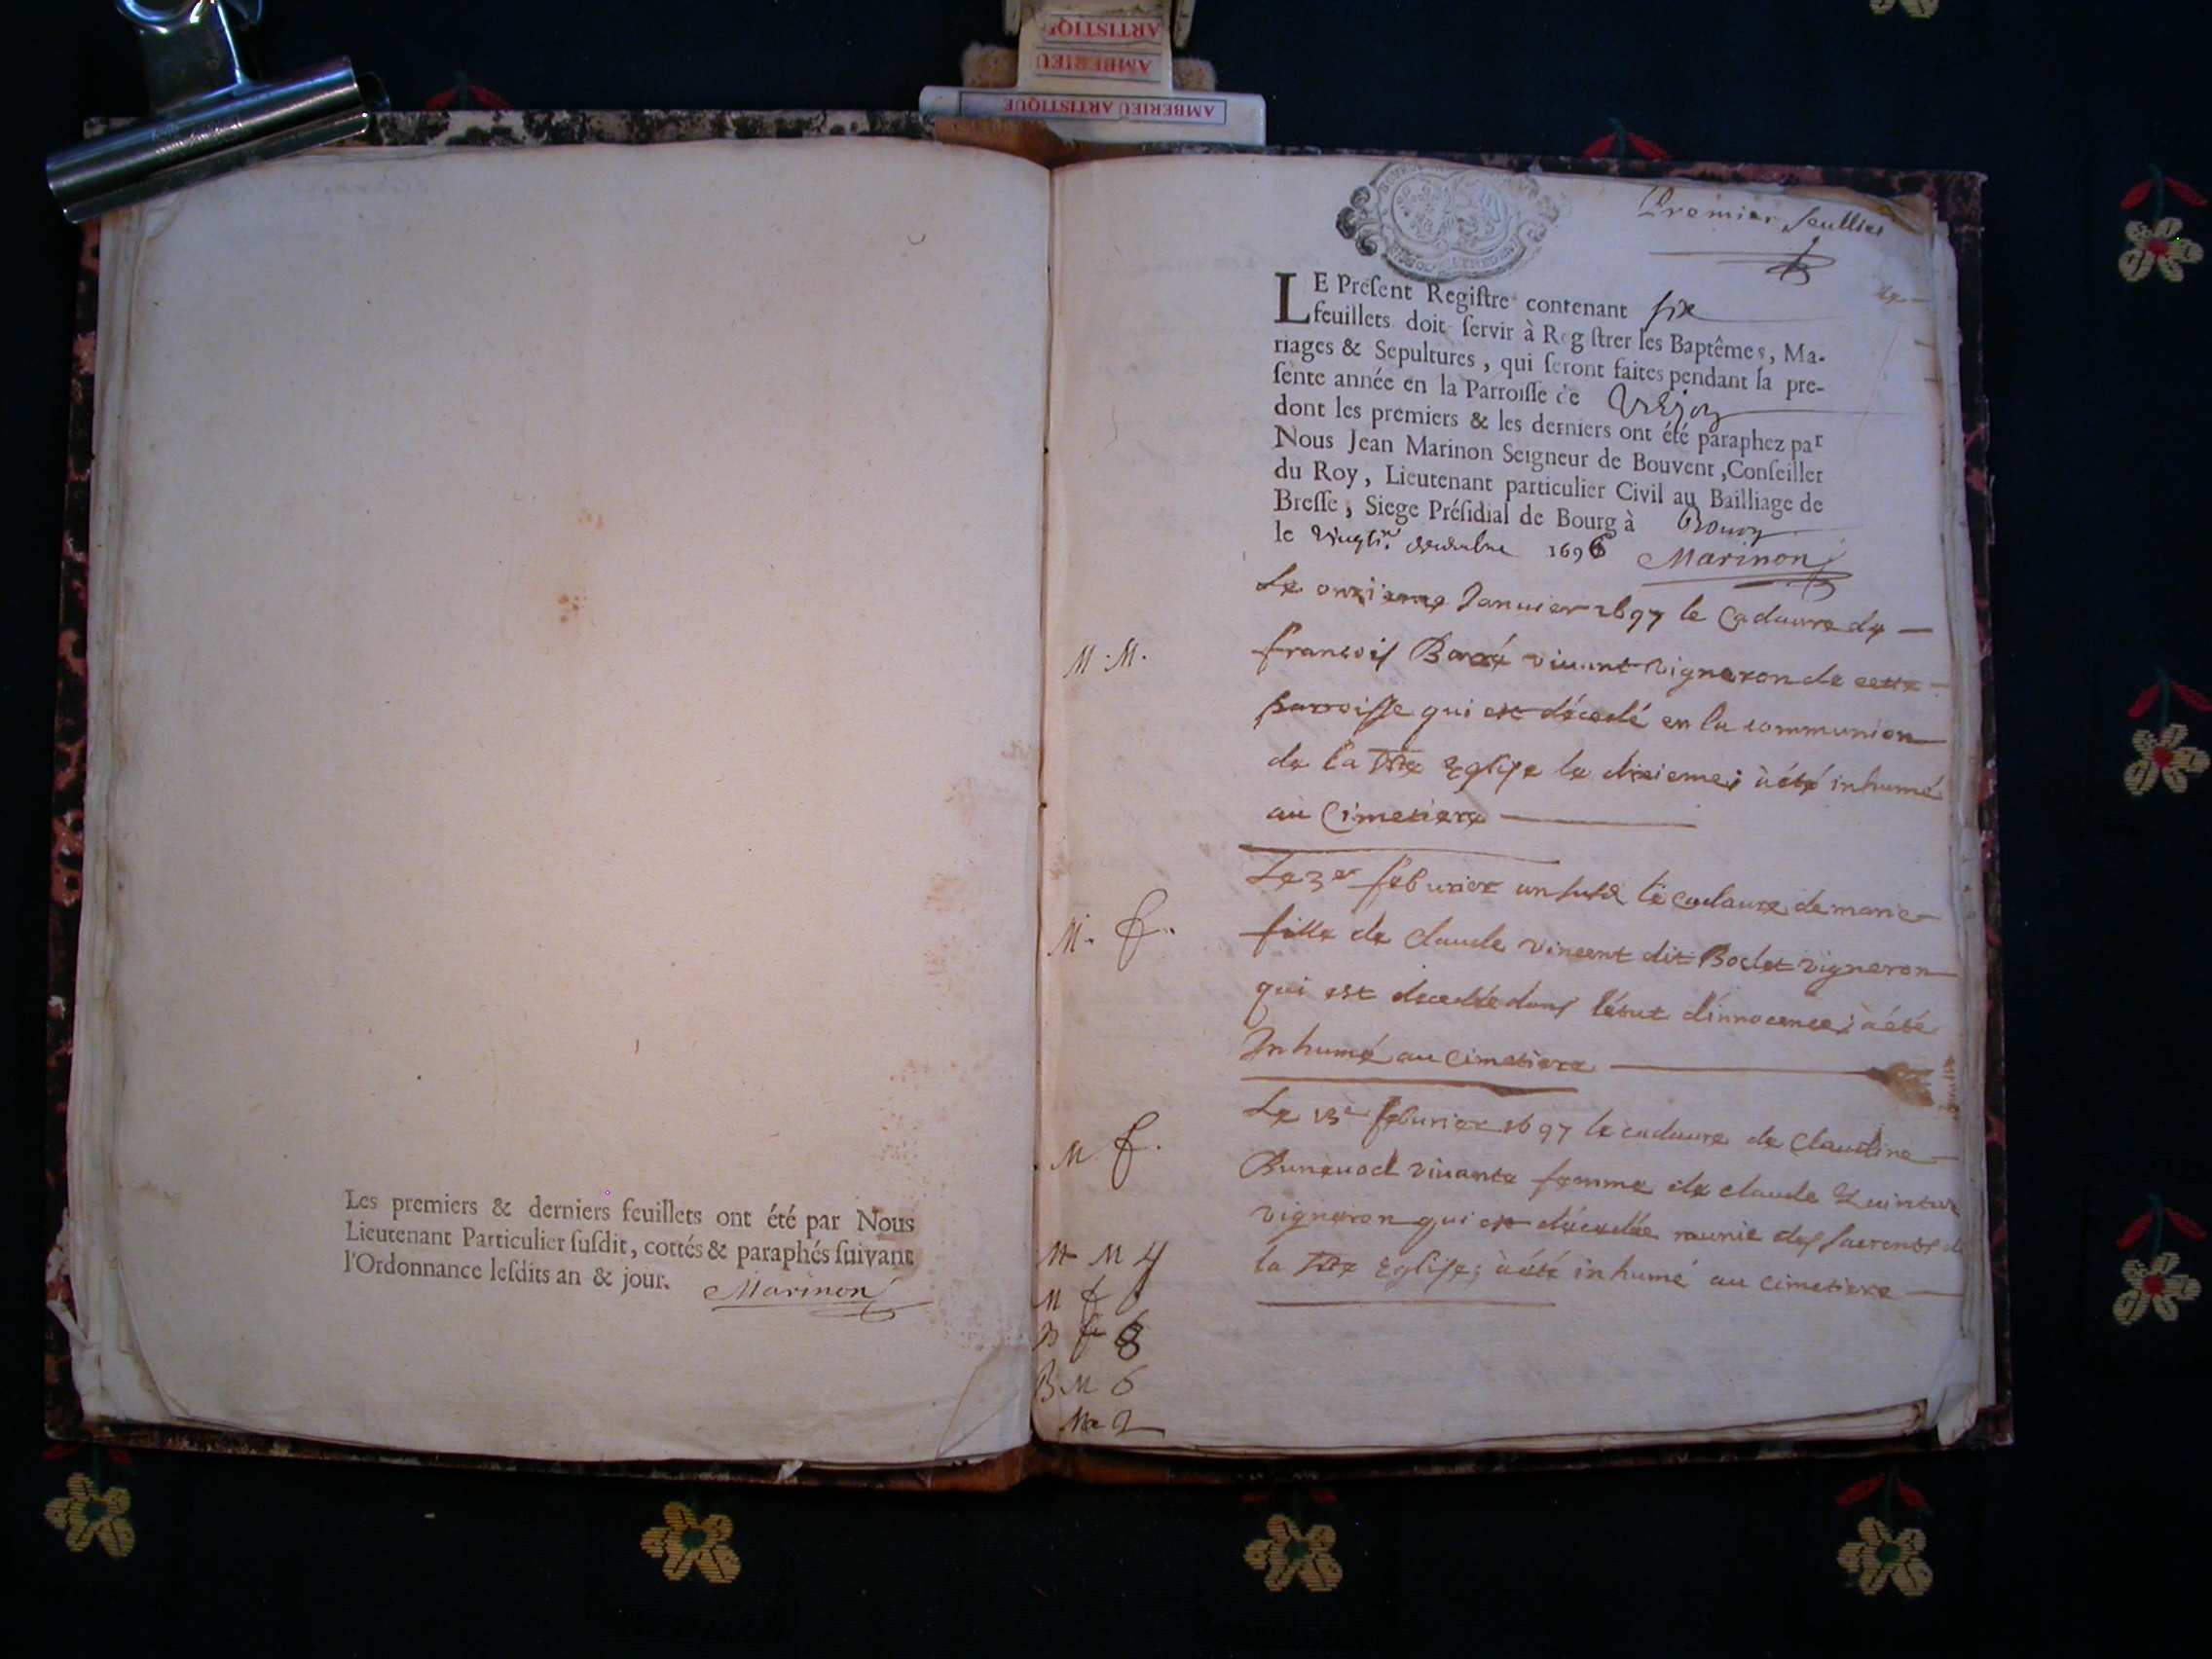 Les premiers & derniers feuillets ont été par Nous
Lieutenant Particulier ſuſdit, cottés & paraphés ſuivant
l'Ordonnance leſdits an & jour. Marinon
Premier feuillet
LE Preſent Regiſtre contenant ſix
feuillets doit ſervir à Regiſtrer les Baptêmes, Ma-
riages & Sepultures, qui ſeront faites pendant la pre-
ſente année en la Parroiſſe de
dont les premiers & les derniers ont été paraphez par
Nous Jean Marinon Seigneur de Bouvent, Conſeiller
du Roy, Lieutenant particulier Civil au Bailliage de
Breſſe, Siege Préſidial de Bourg à Bourg
le decembre 1696 Marinon
Le onzieme Januier 1697 le Cadaure de
M. M.
francois vivant vigneron de cette
parroisse qui est décedé en la communion
de la Ste Eglise le dixieme; à été inhumé
au Cimetiere
Le 3e feburier an susd le cadaure de marie
M. f.
fille de claude vincent dit Boclet vigneron
qui est decedée dans l'état d'innocence; à été
Inhumé au Cimetiere
Le 13e feburier 1697 le cadaure de Claudine
M f.
vivante femme de claude
vigneron qui est décedée munie des sacrents de
la Ste Eglise; à été inhumé au cimetiere
M M 4
M f
B f 8
B M 6
Me 2
AMBERIEU ARTISTIQUE
AMBERIEU